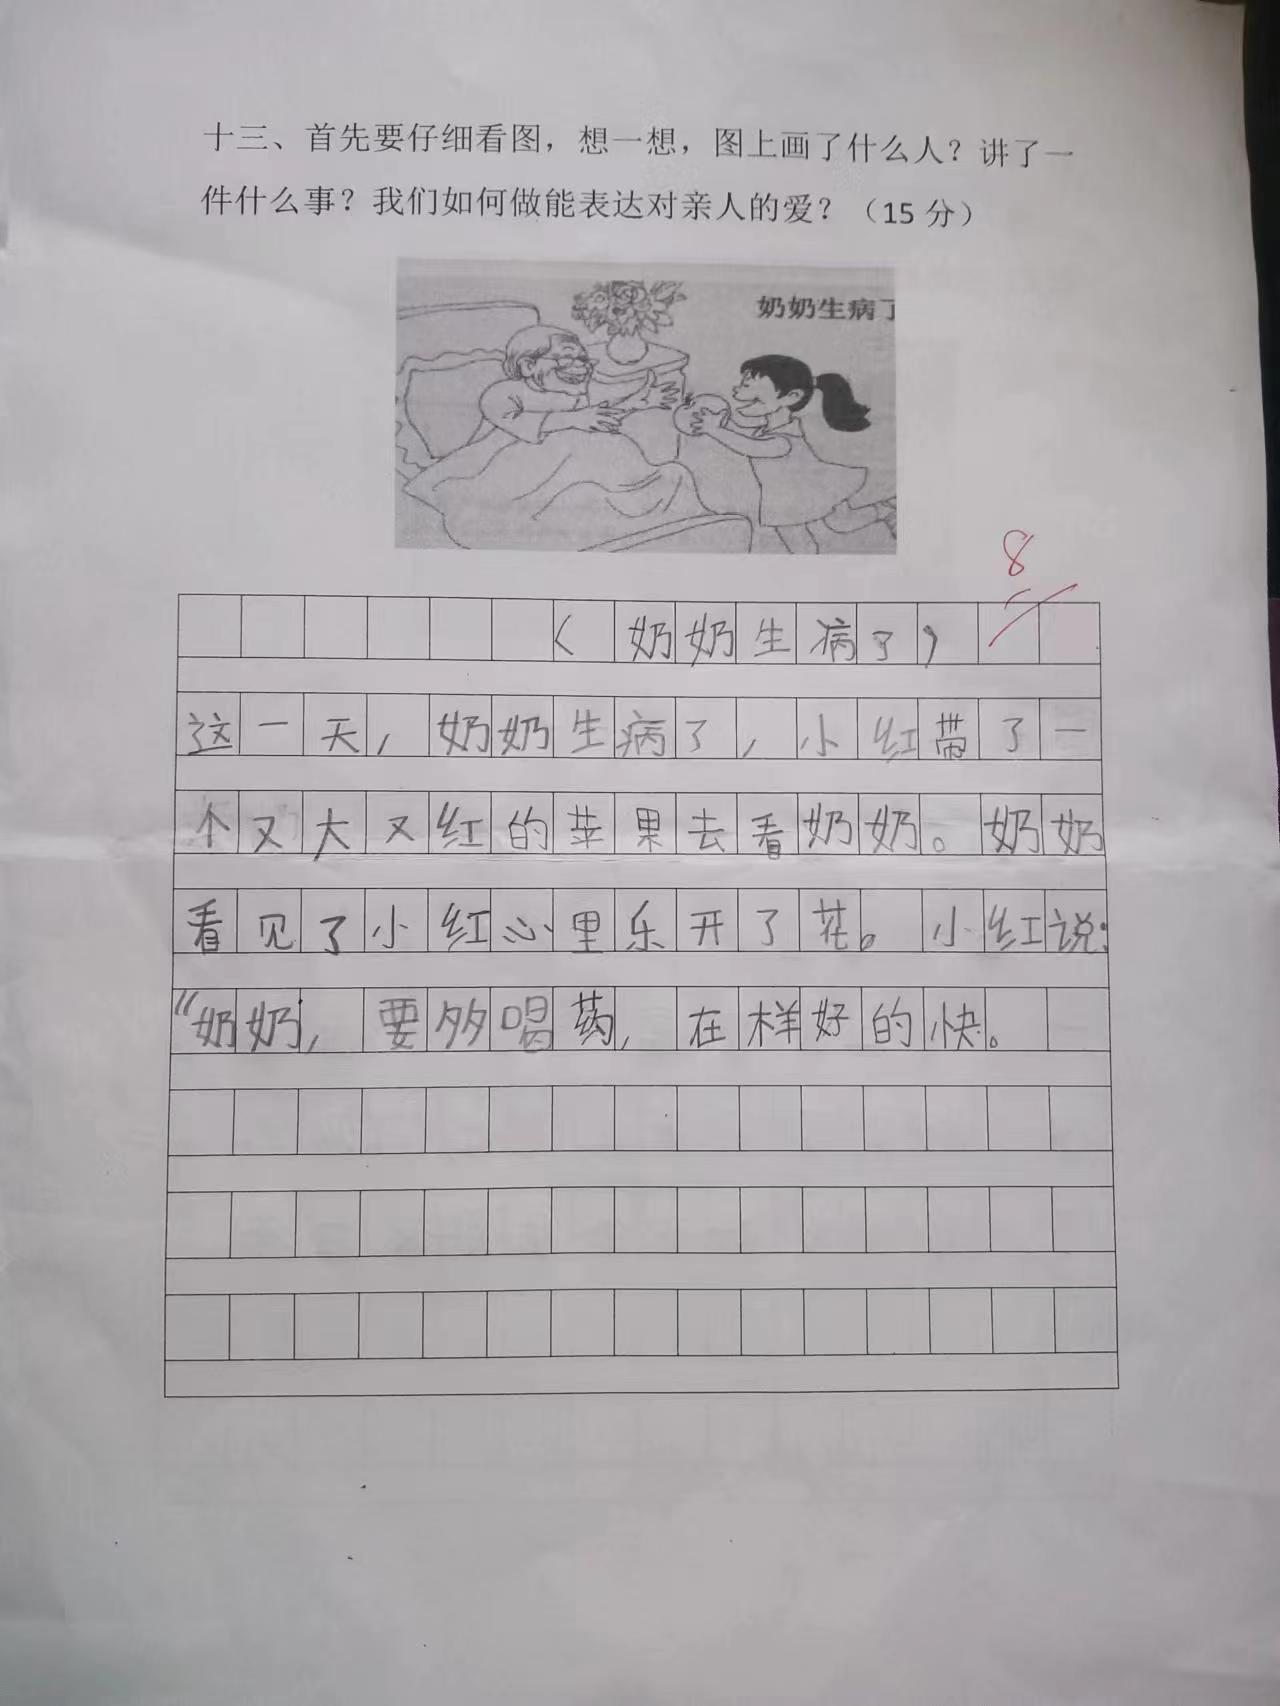 十三、首先要仔细看图，想一想，图上画了什么人？讲了一
件什么事？我们如何做能表达对亲人的爱？（15 分）
奶奶生病了
8
《奶奶生病了》
这一天，奶奶生病了，小红带了一
个又大又红的苹果去看奶奶。奶奶
看见了小红心里乐开了花。小红说：
“奶奶，要多喝药，在样好的快。